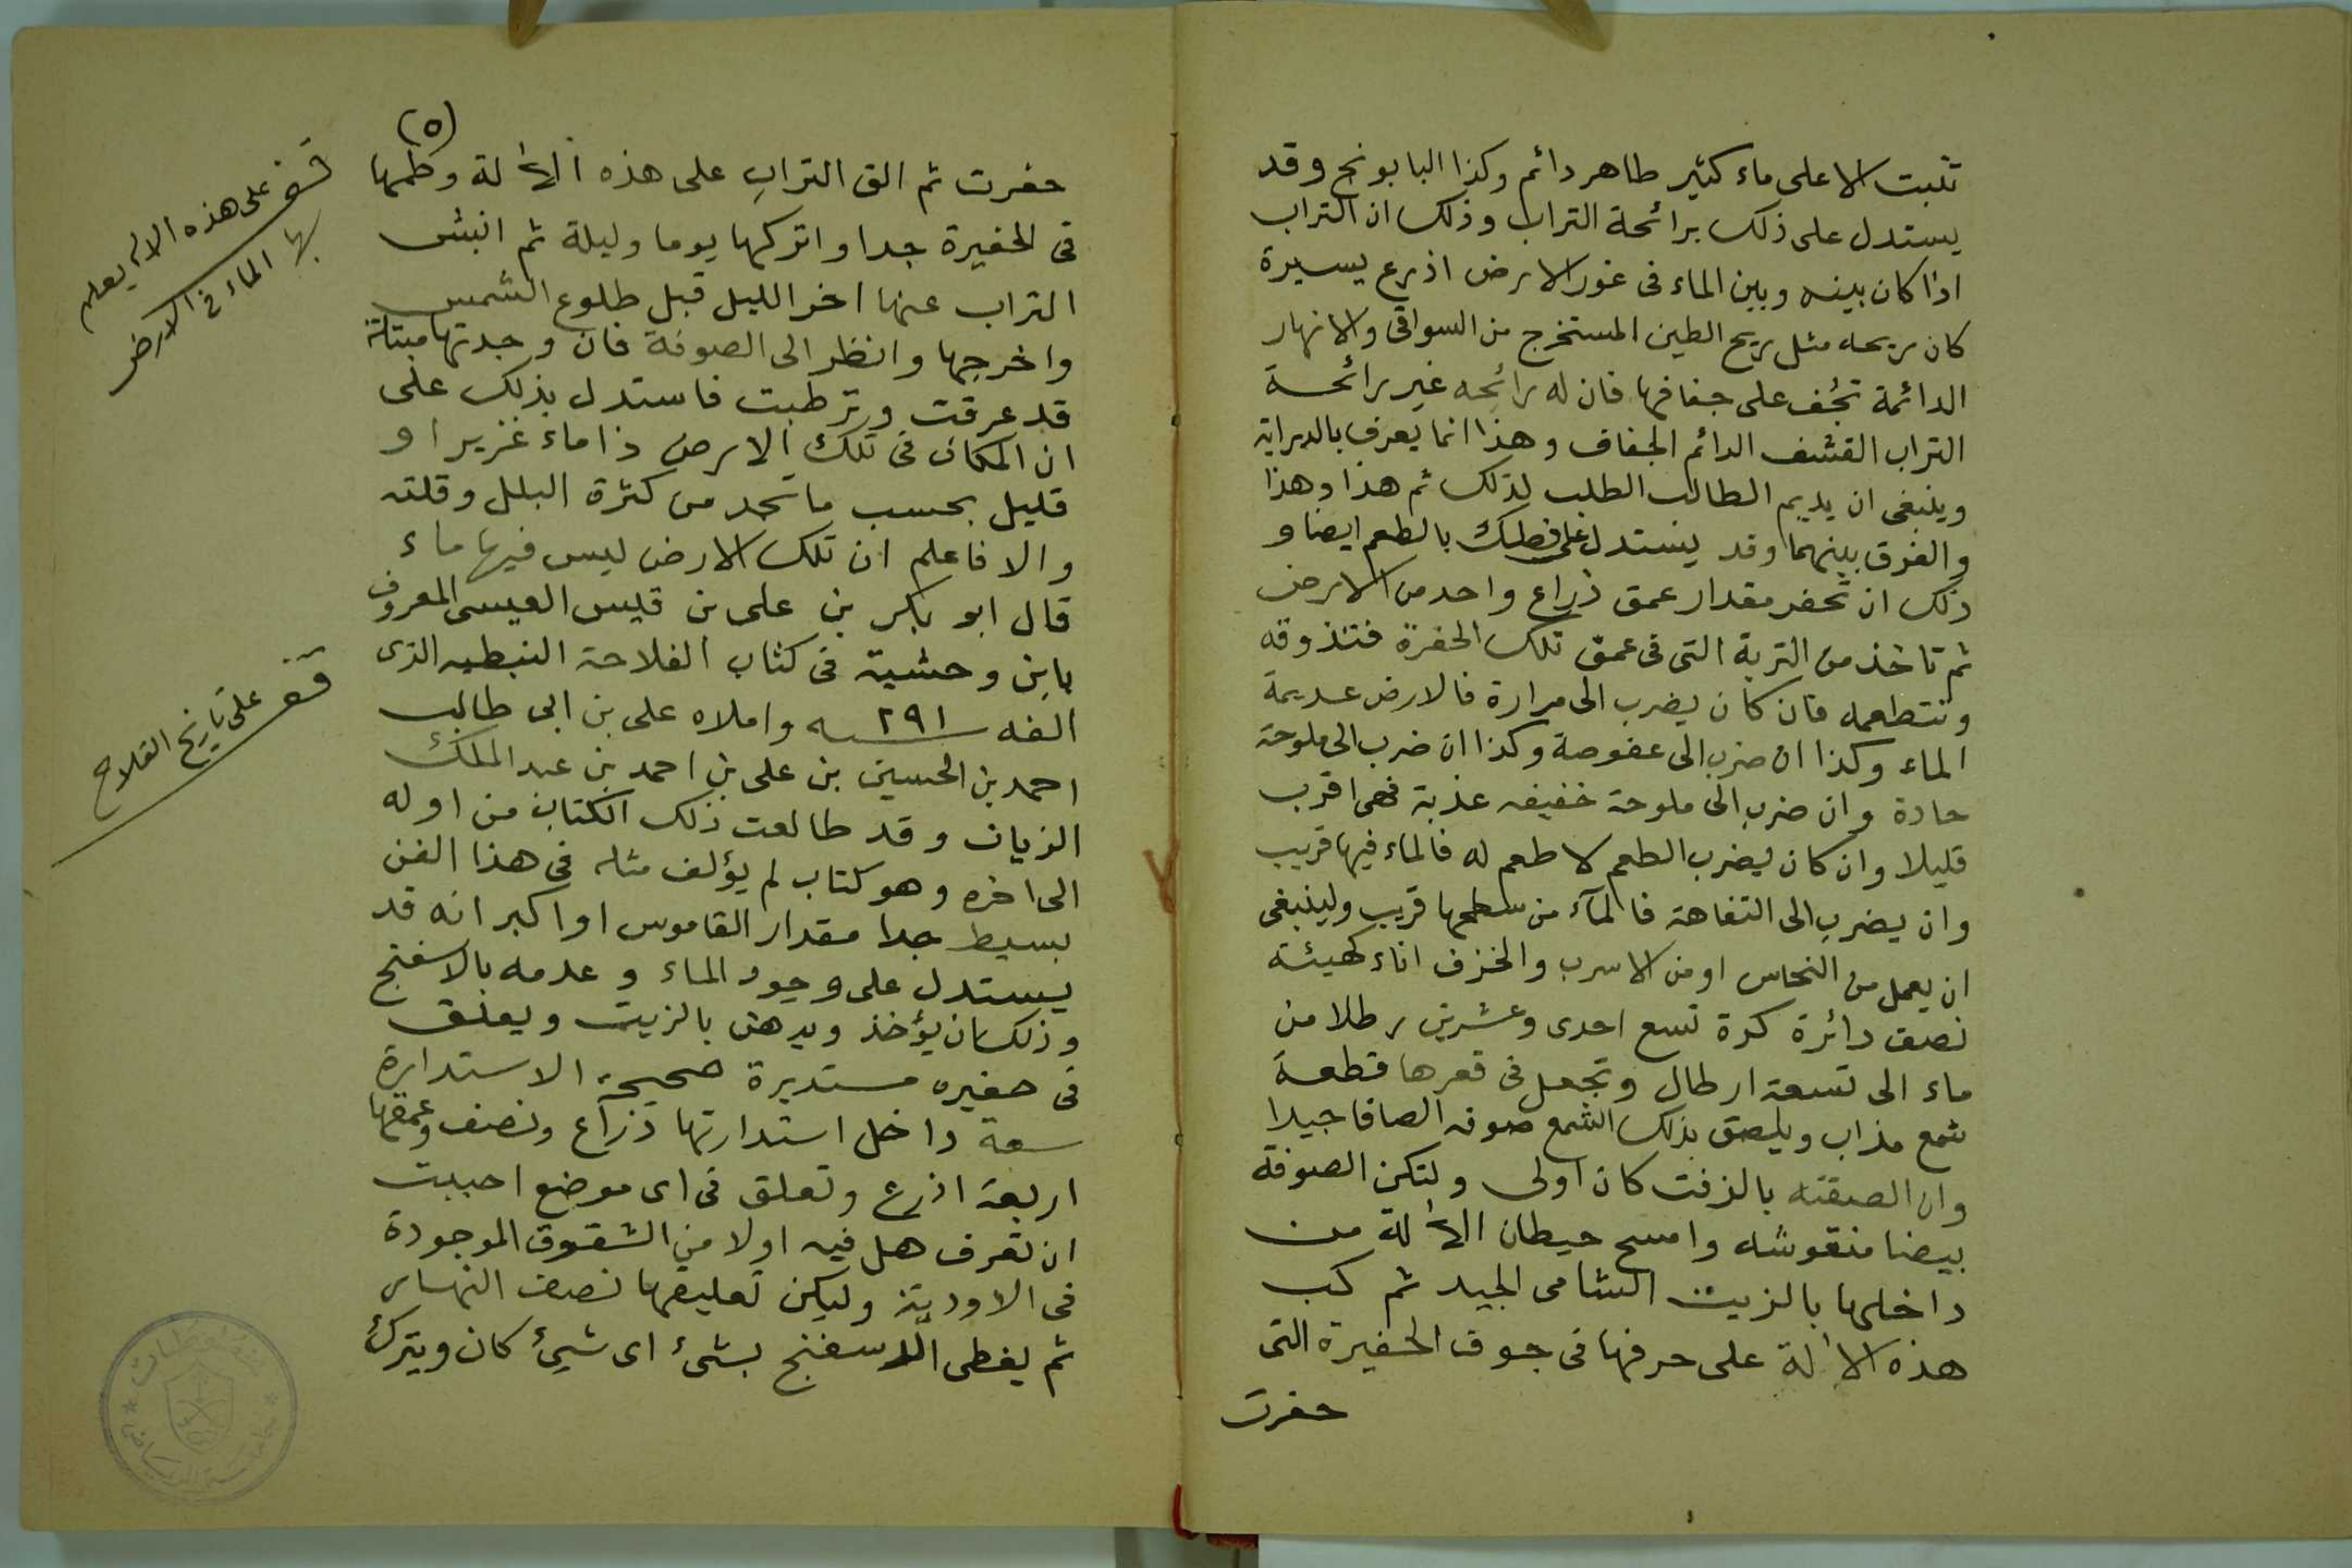 تثبت الا على ماء كثير طاهر دائم وكذا البابونج وقد
يستدل على ذلك برائحة التراب وذلك ان التراب
اذا كان بينه وبين الماء فى غور الارض اذرع يسيرة
كان ريحه مثل ريح الطين المستخرج من السواقى والانهار
الدائمة تجُف على جفافها فان له رائحه غير رائحة
التراب القشف الدائم الجفاف وهذا انما يعرف بالدراية
وينبغى ان يديم الطالب الطلب لذلك ثم هذا وهذا
والفرق بينهما وقد يستدل على بالطعم ايضا و
ذلك ان تحفر مقدار عمق ذراع واحد من الارض
ثم تاخذ من التربة التى فى عمق تلك الحفرة فتذوقه
وتتطعمه فان كان يضرب الى مرارة فالارض عديمة
الماء وكذا ان ضرب الى عفوصة وكذا ان ضرب الى ملوحة
حادة وان ضرب الى ملوحة خفيفه عذبة فهى اقرب
قليلا وان كان يضرب الطعم لا طعم له فالماء فيها قريب
وان يضرب الى التفاهة فالمآء من سطحها قريب ولينبغى
ان يعمل من النحاس او من الاسرب والخزف اناء كهيئة
نصف دائرة كرة تسع احدى وعشرين رطلا من
ماء الى تسعة ارطال وتجعل فى قعرها قطعة
شمع مذاب ويلصق بذلك الشمع صوفه الصاقا جيدا
وان الصقته بالزفت كان اولى ولتكن الصوفة
بيضا منقوشه وامسح حيطان الآلة من
داخلها بالزيت الشامى الجيد ثم كب
هذه الآلة على حرفها فى جوف الحفيرة التى
حفرت
(٥)
حفرت ثم الق التراب على هذه الآلة وطمها
فى الحفيرة جدا واتركها يوما وليلة ثم انبش
التراب عنها اخر الليل قبل طلوع الشمس
واخرجها وانظر الى الصوفة فان وجدتها مبتلة
قد عرقت وترطبت فاستدل بذلك على
ان المكان فى تلك الارض ذا ماء غزير او
قليل بحسب ما تجد من كثرة البلل وقلته
والا فاعلم ان تلك الارض ليس فيها ماء
قال ابو بكر بن على بن قيس العيسى المعروف
بابن وحشية فى كتاب الفلاحة النبطيه الذى
الفه سنه ٢٩١ واملاه على بن ابى طالب
احمد بن الحسين بن على بن احمد بن عبد الملك
الزيات وقد طالعت ذلك الكتاب من اوله
الى اخره وهو كتاب لم يؤلف مثله فى هذا الفن
بسيط جدا مقدار القاموس او اكبر انه قد
يستدل على وجود الماء وعدمه بالاسفنج
وذلك ان يؤخذ ويدهن بالزيت ويعلق
فى حفيره مستديرة صحيحة الاستدارة
سعة داخل استدارتها ذراع ونصف وعمقها
اربعة اذرع وتعلق فى اى موضع احببت
ان تعرف هل فيه اولا من الشقوق الموجودة
فى الاودية وليكن تعليقها نصف النهار
ثم يغطى الاسفنج بشئ اى شيئ كان ويترك
قف على هذه الاله يعلم
بها الماء فى الارض
قف على تاريخ الفلاح